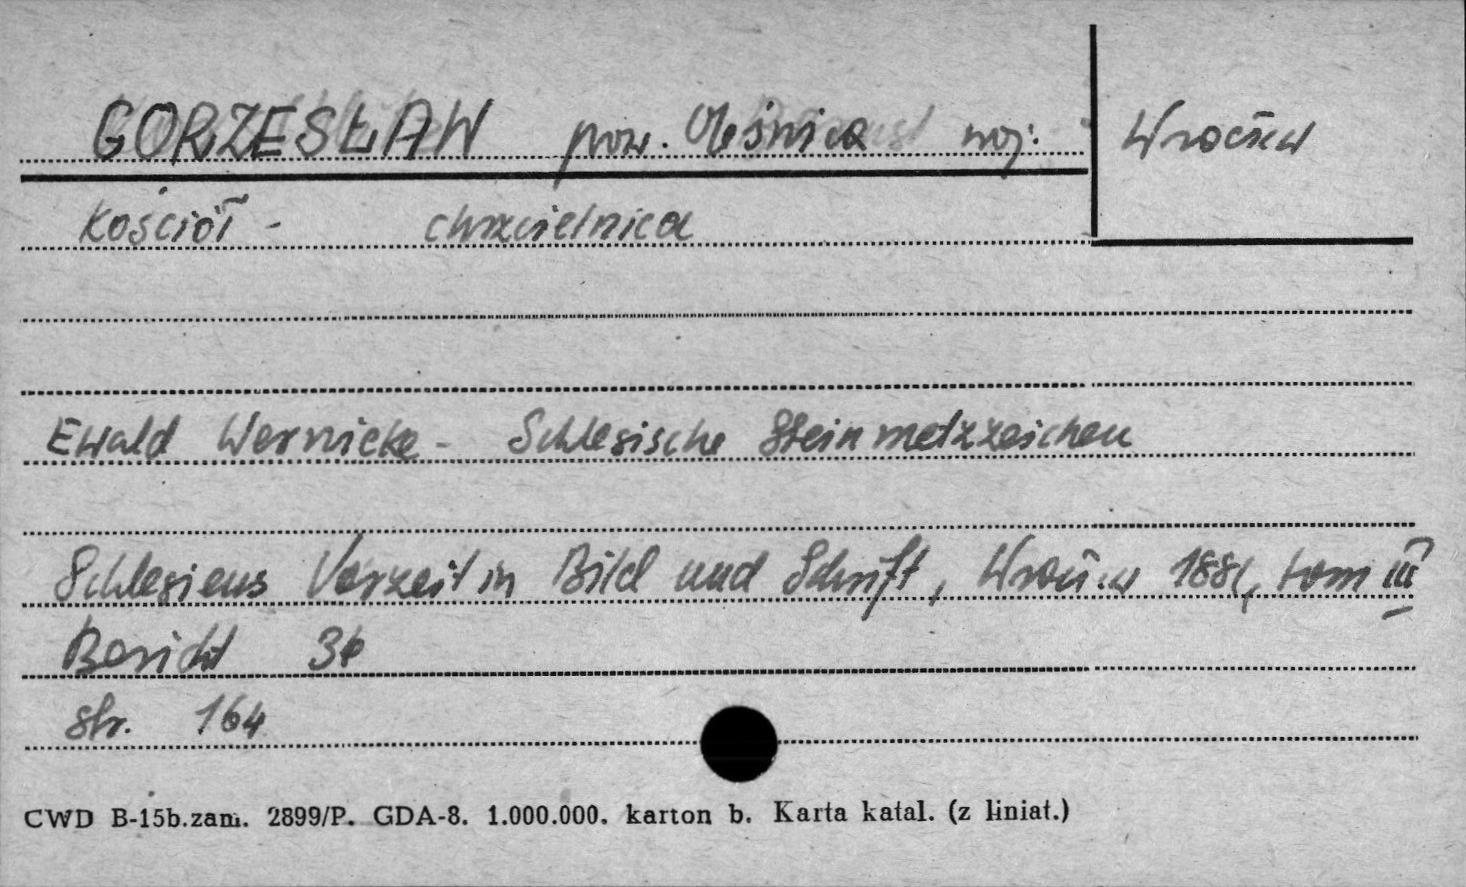 GORZESŁAW pow. Oleśnica woj: Wrocław
Kościół - chrzcielnica
Ewald Wernicke - Schlesische Steinmetzzeichen
Schlesiens Vorzeit in Bild und Schrift, Wrocław 1881, tom III
Bericht 36
str. 164
CWD B-15b.zam. 2899/P. GDA-8. 1.000.000. karton b. Karta katal. (z liniat.)